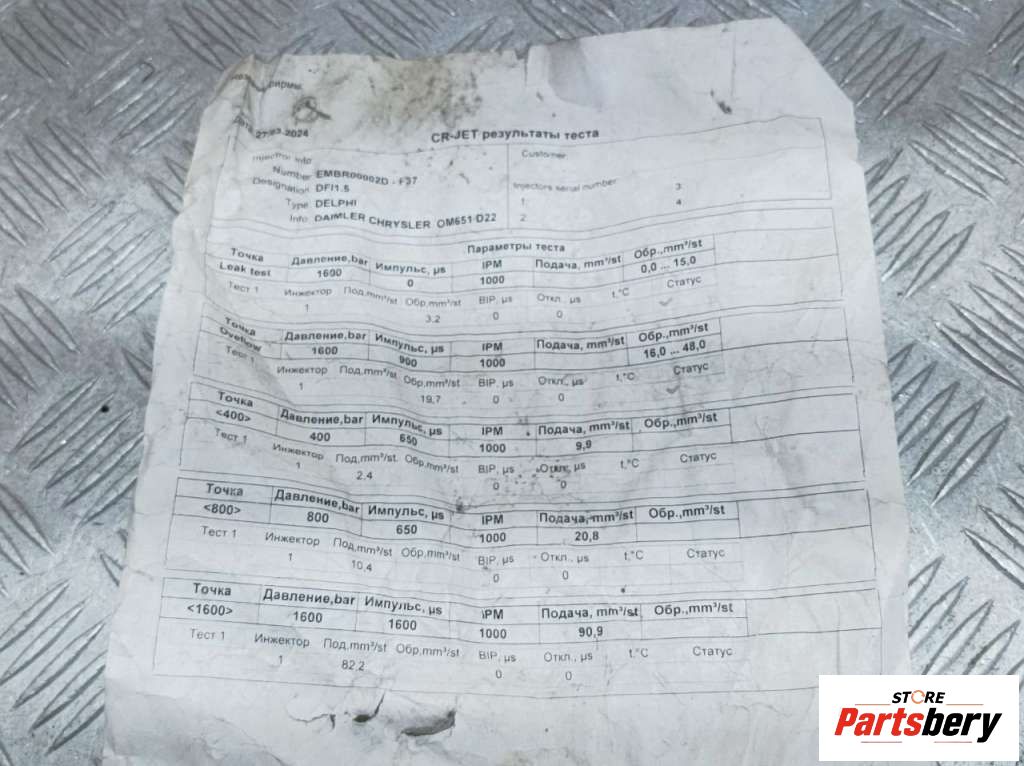 фирмы
Дата 27.03.2024
CR-JET результаты теста
Injector info
Customer
Number EMBR00002D - F37
Designation DFI1.5
Type DELPHI
Info DAIMLER CHRYSLER OM651 D22
Injectors serial number
1 3
2 4
Параметры теста
Точка Давление,bar Импульс, µs IPM Подача, mm³/st Обр.,mm³/st
Leak test 1600 0 1000 0,0 ... 15,0
Тест 1 Инжектор Под,mm³/st Обр,mm³/st BIP, µs Откл., µs t,°C Статус
1 3,2 0 0
Точка Давление,bar Импульс, µs IPM Подача, mm³/st Обр.,mm³/st
Overlow 1600 900 1000 16,0 ... 48,0
Тест 1 Инжектор Под,mm³/st Обр,mm³/st BIP, µs Откл., µs t,°C Статус
1 19,7 0 0
Точка Давление,bar Импульс, µs IPM Подача, mm³/st Обр.,mm³/st
<400> 400 650 1000 9,9
Тест 1 Инжектор Под,mm³/st Обр,mm³/st BIP, µs Откл., µs t,°C Статус
1 2,4 0 0
Точка Давление,bar Импульс, µs IPM Подача, mm³/st Обр.,mm³/st
<800> 800 650 1000 20,8
Тест 1 Инжектор Под,mm³/st Обр,mm³/st BIP, µs Откл., µs t,°C Статус
1 10,4 0 0
Точка Давление,bar Импульс, µs IPM Подача, mm³/st Обр.,mm³/st
<1600> 1600 1600 1000 90,9
Тест 1 Инжектор Под,mm³/st Обр,mm³/st BIP, µs Откл., µs t,°C Статус
1 82,2 0 0
STORE
Partsbery